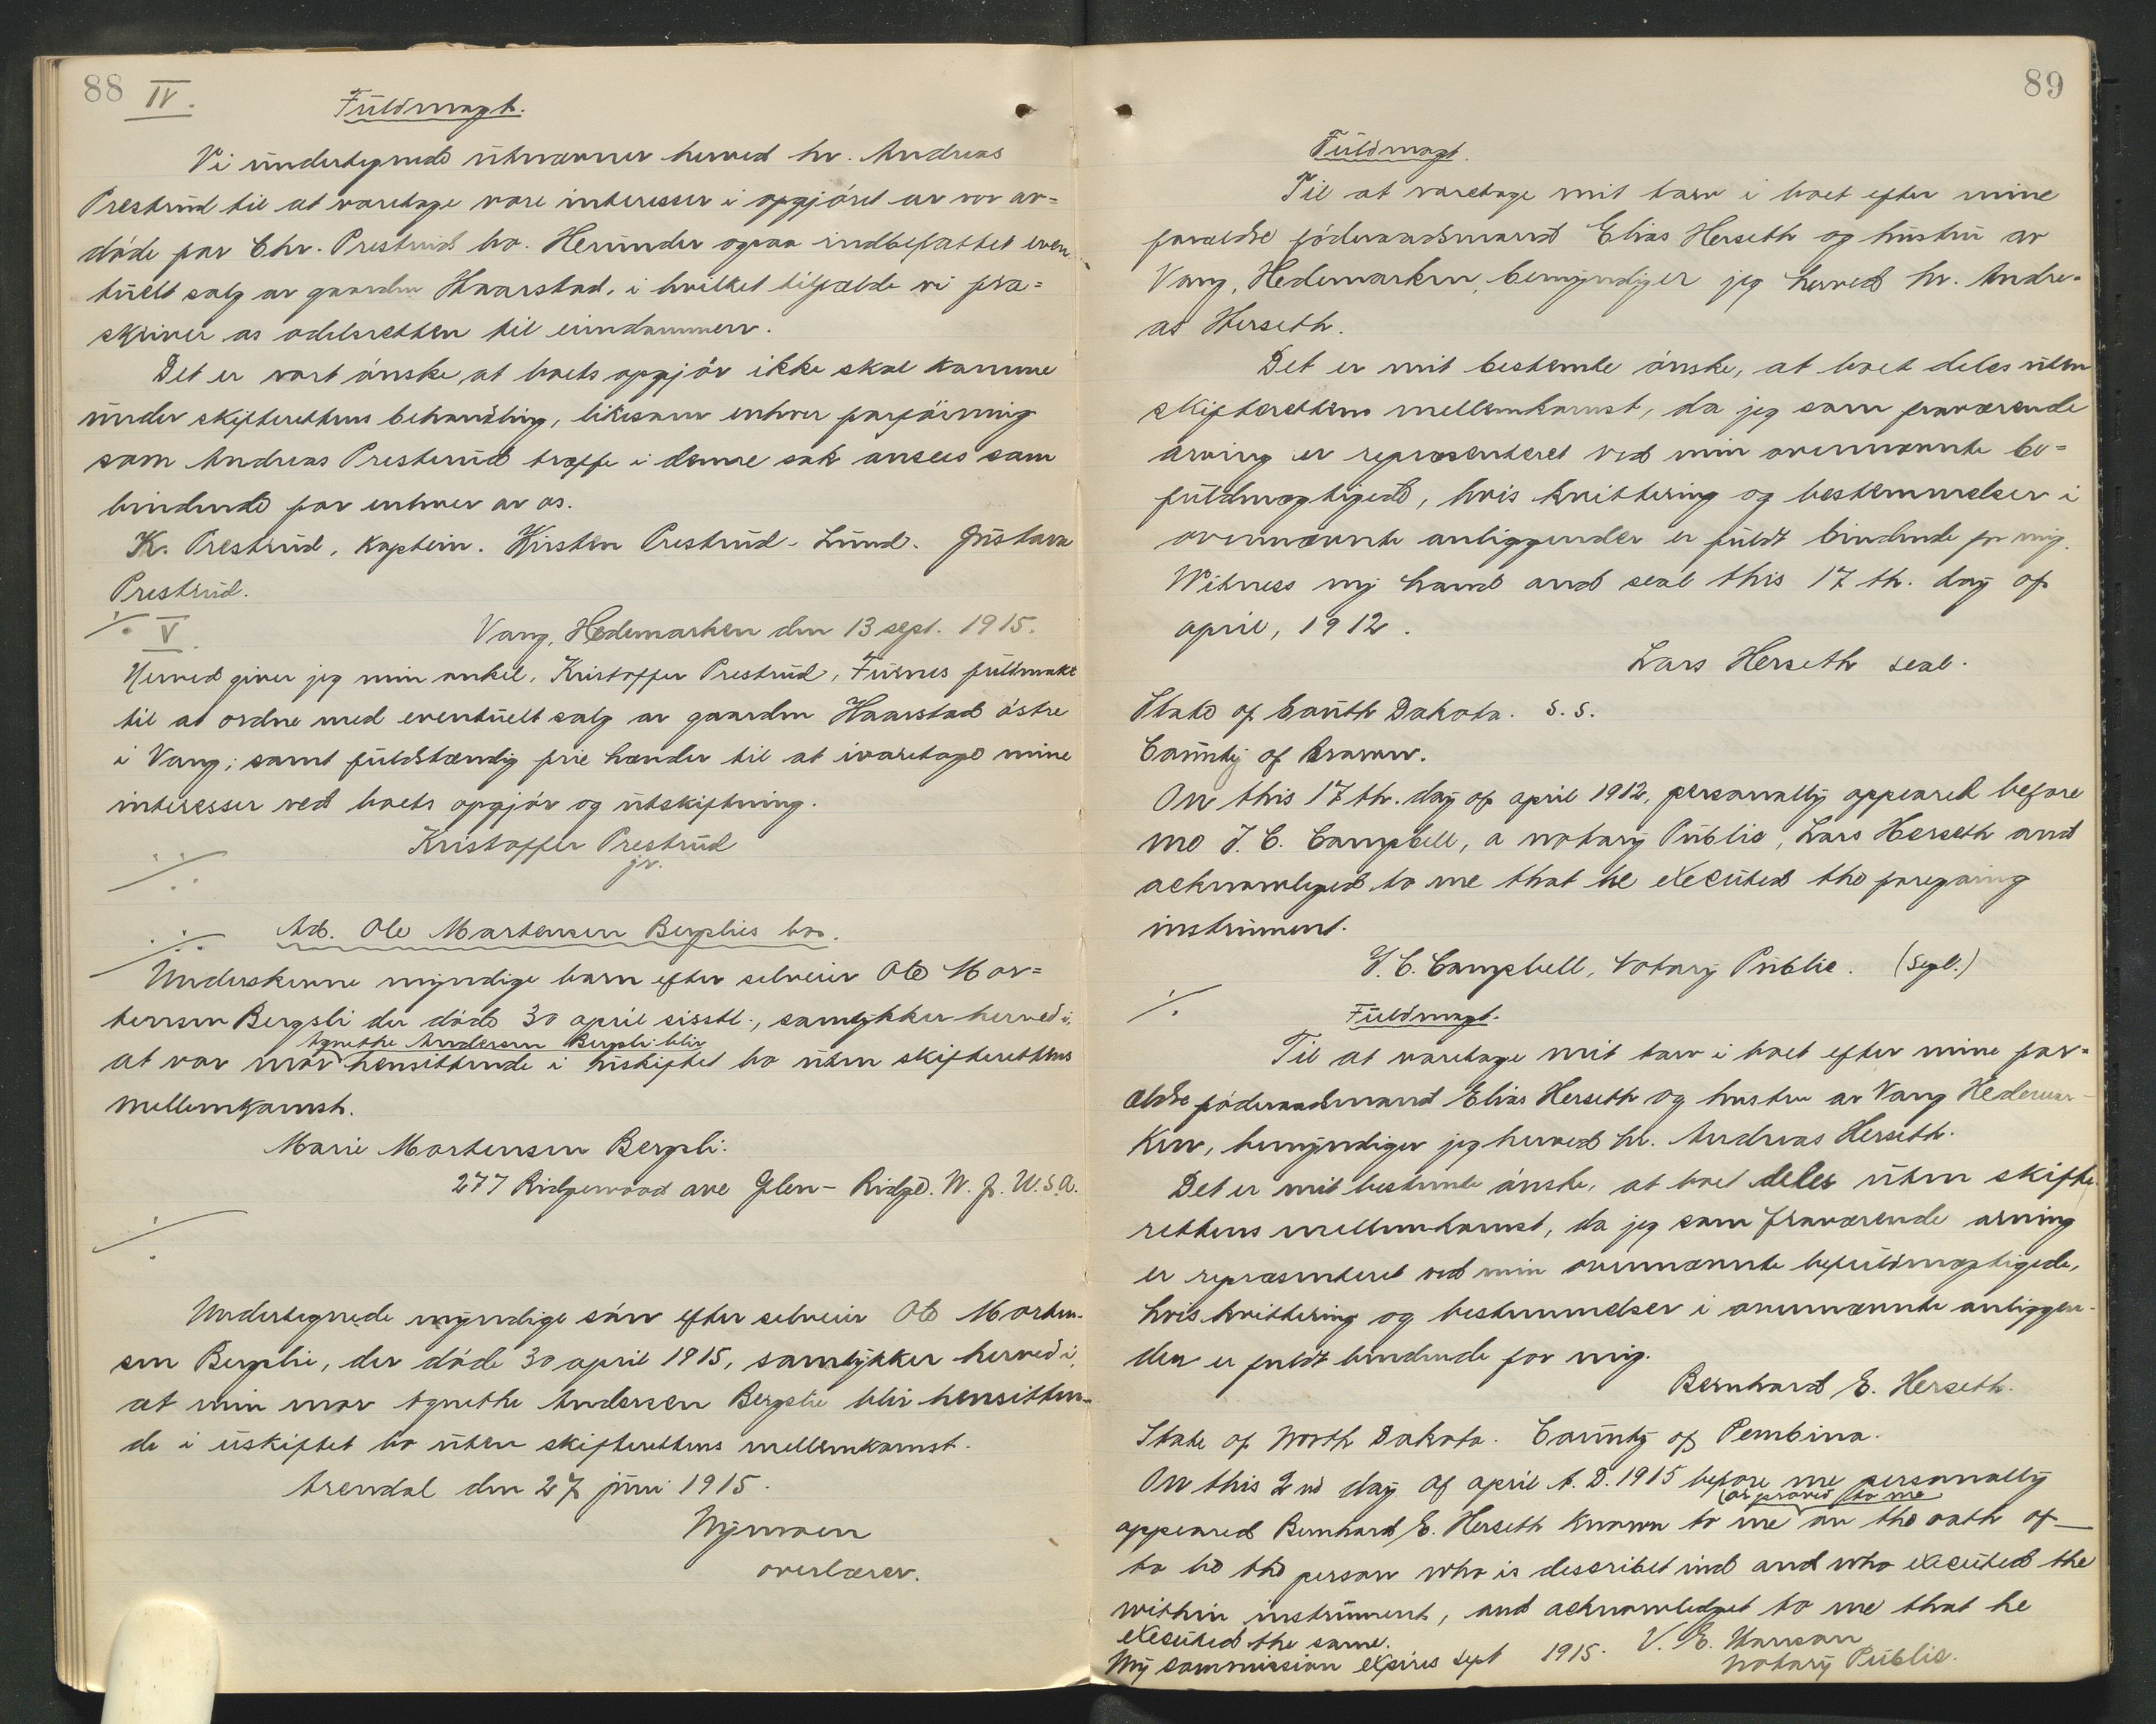 88 IV.
Fuldmagt.
Vi undertegnede utnævner herved hr. Andreas
Prestrud til at varetage vore interesser i opgjöret av vor av=
döde far Chr. Prestruds bo. Herunder ogsaa indbefattet even
tuelt salg av gaarden Haarstad, i hvilket tilfælde vi fra=
skriver os odelsretten til eiendommen.
Det er vort önske, at boets opgjör ikke skal komme
under skifterettens behandling, likesom enhver forföining
som Andreas Prestrud træffe i denne sak ansees som
bindende for enhver av os.
K. Prestrud, kaptein. Kirsten Prestrud-Lund. Gustava
Prestrud.
V
Vang, Hedemarken den 13 sept. 1915.
Herved giver jeg min onkel, Kristoffer Prestrud, Furnes fuldmakt
til at ordne med eventuelt salg av gaarden Haarstad östre
i Vang; samt fuldstændig frie hænder til at ivaretage mine
interesser ved boets opgjör og utskiftning.
Kristoffer Prestrud
jr.
Ad. Ole Martensen Bergslies bo.
Underskrevne myndige barn efter selveier Ole Mor=
tensen Bergsli der döde 30 april sisstl., samtykker herved i,
Agnethe Andersen Bergsli blir
at vor mor hensittende i uskiftet bo uten skifterettens
mellemkomst.
Marie Mortensen Bergsli.
277 Ridgewood ave Glen-Ridge. N. J. U.S.A.
Undertegnede myndige sön efter selveier Ole Morten-
sen Bergslie, der döde 30 april 1915, samtykker herved i,
at min mor Agnethe Andersen Bergslie blir hensitten-
de i uskiftet bo uten skifterettens mellemkomst.
Arendal den 27 juni 1915.
Nymoen
overlærer.
89
Fuldmagt.
Til at varetage mit tarv i boet efter mine
forældre föderaadsmand Elias Herseth og hustru av
Vang, Hedemarken, bemyndiger jeg herved hr. Andre-
as Herseth.
Det er mit bestemte önske, at boet deles uten
skifterettens mellemkomst, da jeg som fraværende
arving er repræsenteret ved min ovennævnte be=
fuldmægtigede, hvis kvittering og bestemmelser i
ovennævnte anliggender er fuldt bindende for mig.
Witness my hand and seal this 17 th. day of
april, 1912.
Lars Herseth seal.
State of South Dakota. S.S.
County of Brown.
On this 17 th. day of april 1912, personally appeared before
me J. C. Campbell, a notary Public, Lars Herseth and
acknowleged to me that he executed the foregoing
instrument.
J. C. Campbell, Notary Public. (segl.)
Fuldmagt.
Til at varetage mit tarv i boet efter mine for-
ældre föderaadsmand Elias Herseth og hustru av Vang Hedemar-
ken, bemyndiger jeg herved hr. Andreas Herseth.
Det er mit bestemte önske, at boet deles uten skifte
rettens mellemkomst, da jeg som fraværende arving
er repræsenteret ved min ovennævnte befuldmægtigede,
hvis kvittering og bestemmelser i ovennævnte anliggen-
der er fuldt bindende for mig.
Bernhard E. Herseth.
State of North Dakota. County of Pembina.
On this 2 nd day of april A. D. 1915 before me personally
(or proved to me
appeared Bernhard E. Herseth known to me on the oath of —
to be the person who is describet ind and who executed the
within instrument, and acknowledget to me that he
executed the same.
My commission expires sept 1915. V. E. Hanson
Notary Public.